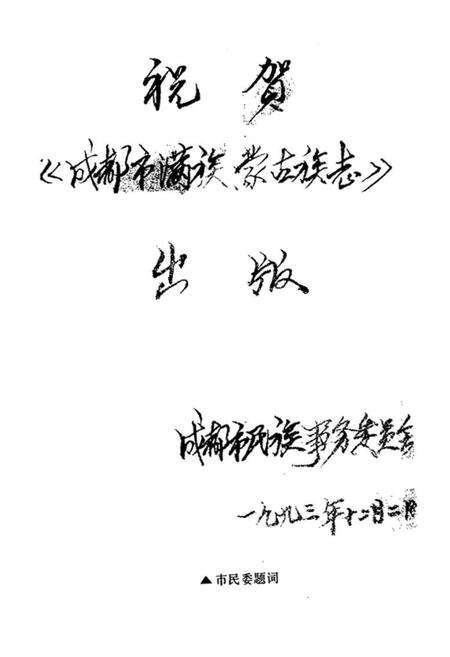 祝贺
《成都市满族蒙古族志》
出版
成都市民族事务委员会
一九九三年十二月二日
▲市民委题词